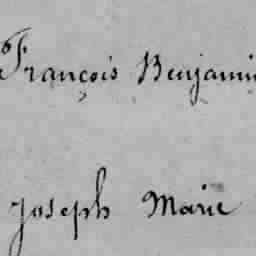 François Benjamin
Joseph Marie